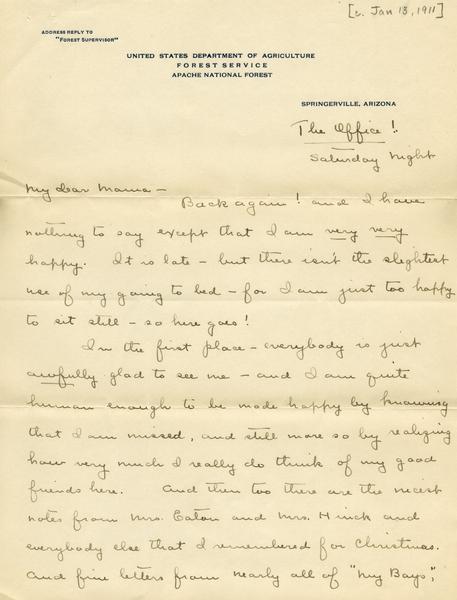 [c. Jan 13, 1911]
ADDRESS REPLY TO
"FOREST SUPERVISOR"
UNITED STATES DEPARTMENT OF AGRICULTURE
FOREST SERVICE
APACHE NATIONAL FOREST
SPRINGERVILLE, ARIZONA
The Office!
Saturday Night
My dear Mama –
Back again! and I have
nothing to say except that I am very very
happy. It is late – but there isn't the slightest
use of my going to bed – for I am just too happy
to sit still – so here goes!
In the first place – everybody is just
awfully glad to see me – and I am quite
human enough to be made happy by knowing
that I am missed, and still more so by realizing
how very much I really do think of my good
friends here. And then too there are the nicest
notes from Mrs. Eaton and Mrs. Hinck and
everybody else that I remembered for Christmas.
And fine letters from nearly all of "My Boys",